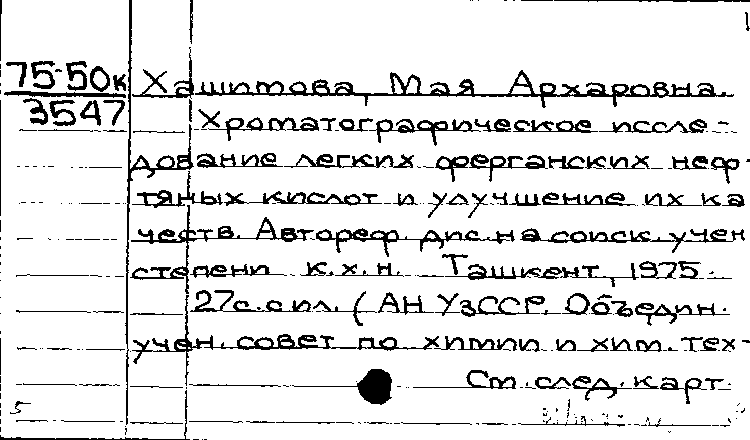 75-50к
3547
Хашимова, Мая Архаровна.
Хроматографическое иссле-
дование легких ферганских неф-
тяных кислот и улучшение их ка
честв. Автореф. дис. на соиск. учен
степени к.х.н. Ташкент, 1975.
27с. с ил. (АН УзССР. Объедин.
учен. совет по химии и хим. тех-
См. след. карт.
5